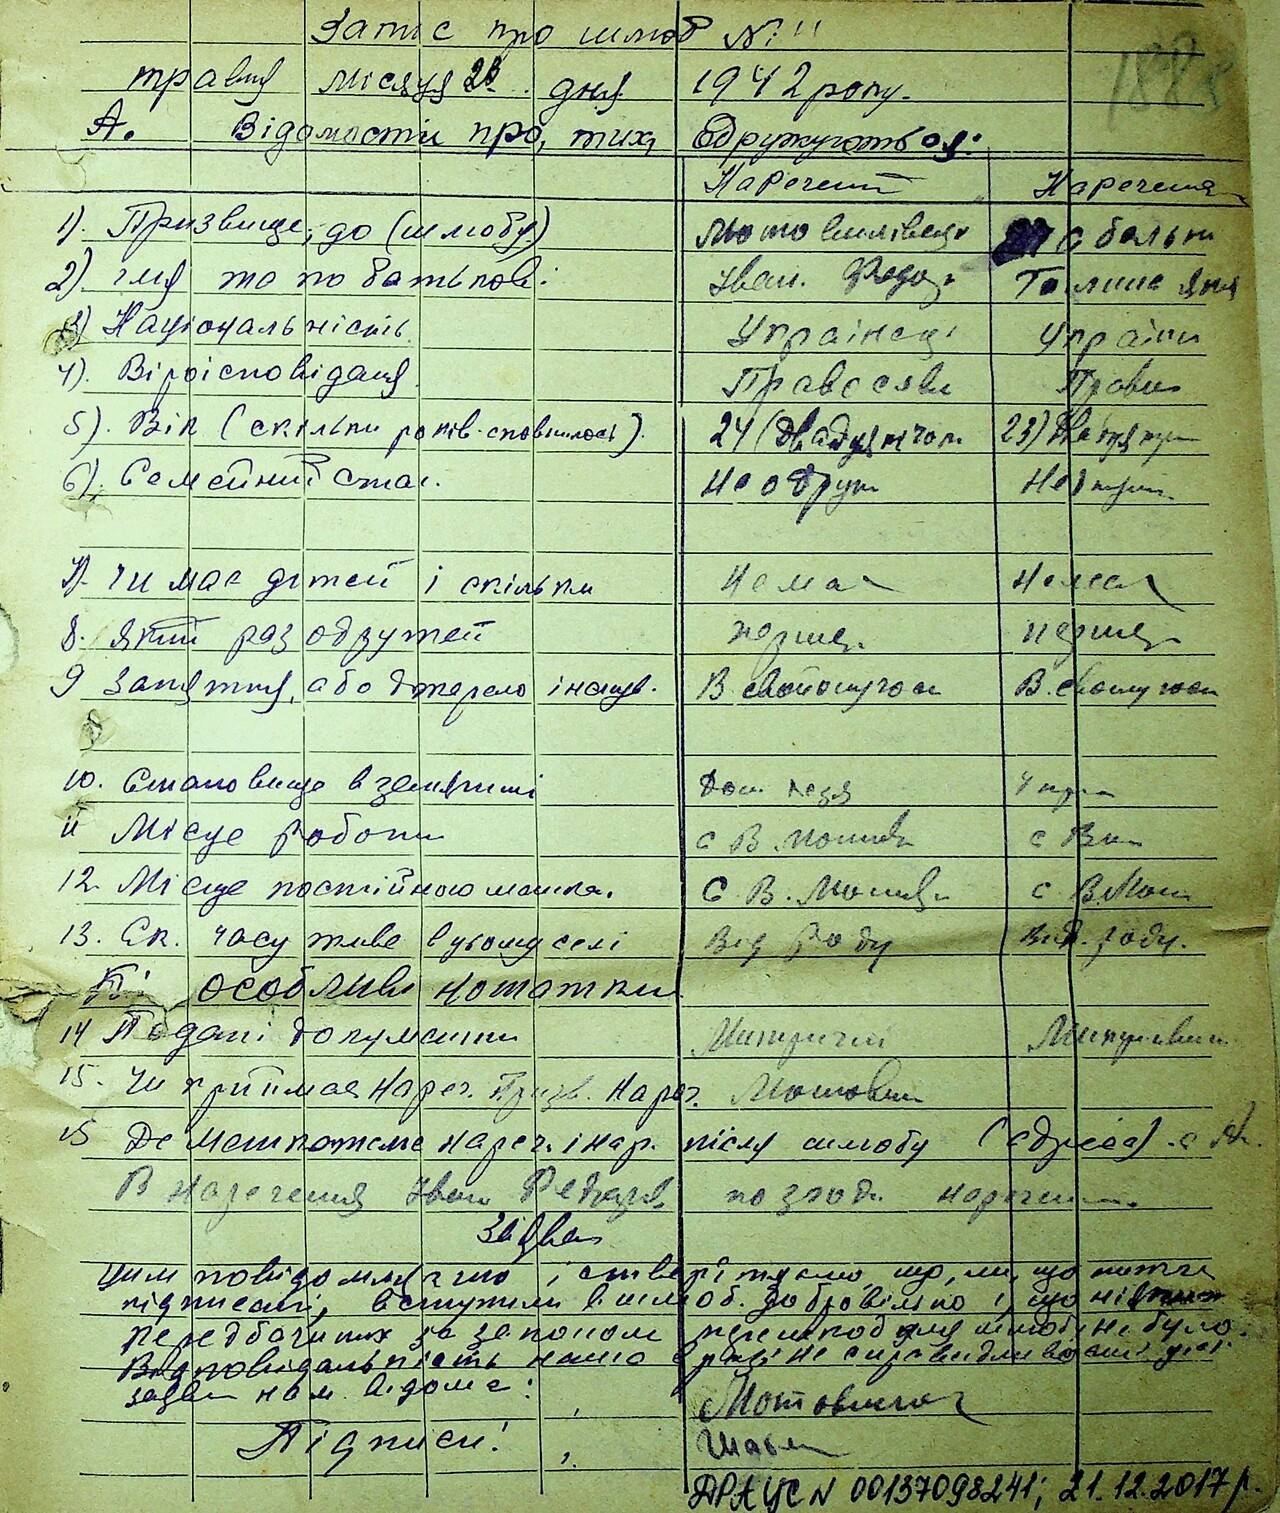 Запис про шлюб № 11
1888
травня місяця 28 дня 1942 року.
А. Відомости про, тих, Одружуються:
Наречений Наречена
1). Призвище, до (шлюбу)
2) імя та по батькові: Іван. Федор
3) Національність Українец Україн
4). Віроісповіданя Правосявн Прав
5). Вік (скільки років сповнилось). 24 (двадця чот 23)
6). Семейний стан. Неодруж
7). Чи має дітей і скільки Нема Немає
8. який раз одружен перший перший
9 Заняття, або джерело існув. В свойому госп В. свому госп
10. Становище в занятті
11 Місце роботи с В
12. Місце постійного мешка. С. В. с В.
13. Ск. часу живе в цьому селі Від Роду Від. Роду.
особливі нотатки
14 Подані документи Метричні
15. Чи приймає Нареч. Призв. Нареч. Мотовил
15 Де мешкатеме нареч. і нар. після шлюбу (адреса). с
В наречення Іван по згоди наречен
Заява
Цим повідомляємо і стверджуємо, що, ми, що нижче
підписані, вступили в шлюб. добровільно і, що ніяких
передбачиних за законом перешкод для шлюбу не було.
Відповідальність нашо в разі не справидливости цієї
заяви нам відома:
Мотовил
Підписи: Шабел
ДРАЦС № 00137098241; 21.12.2017 р.